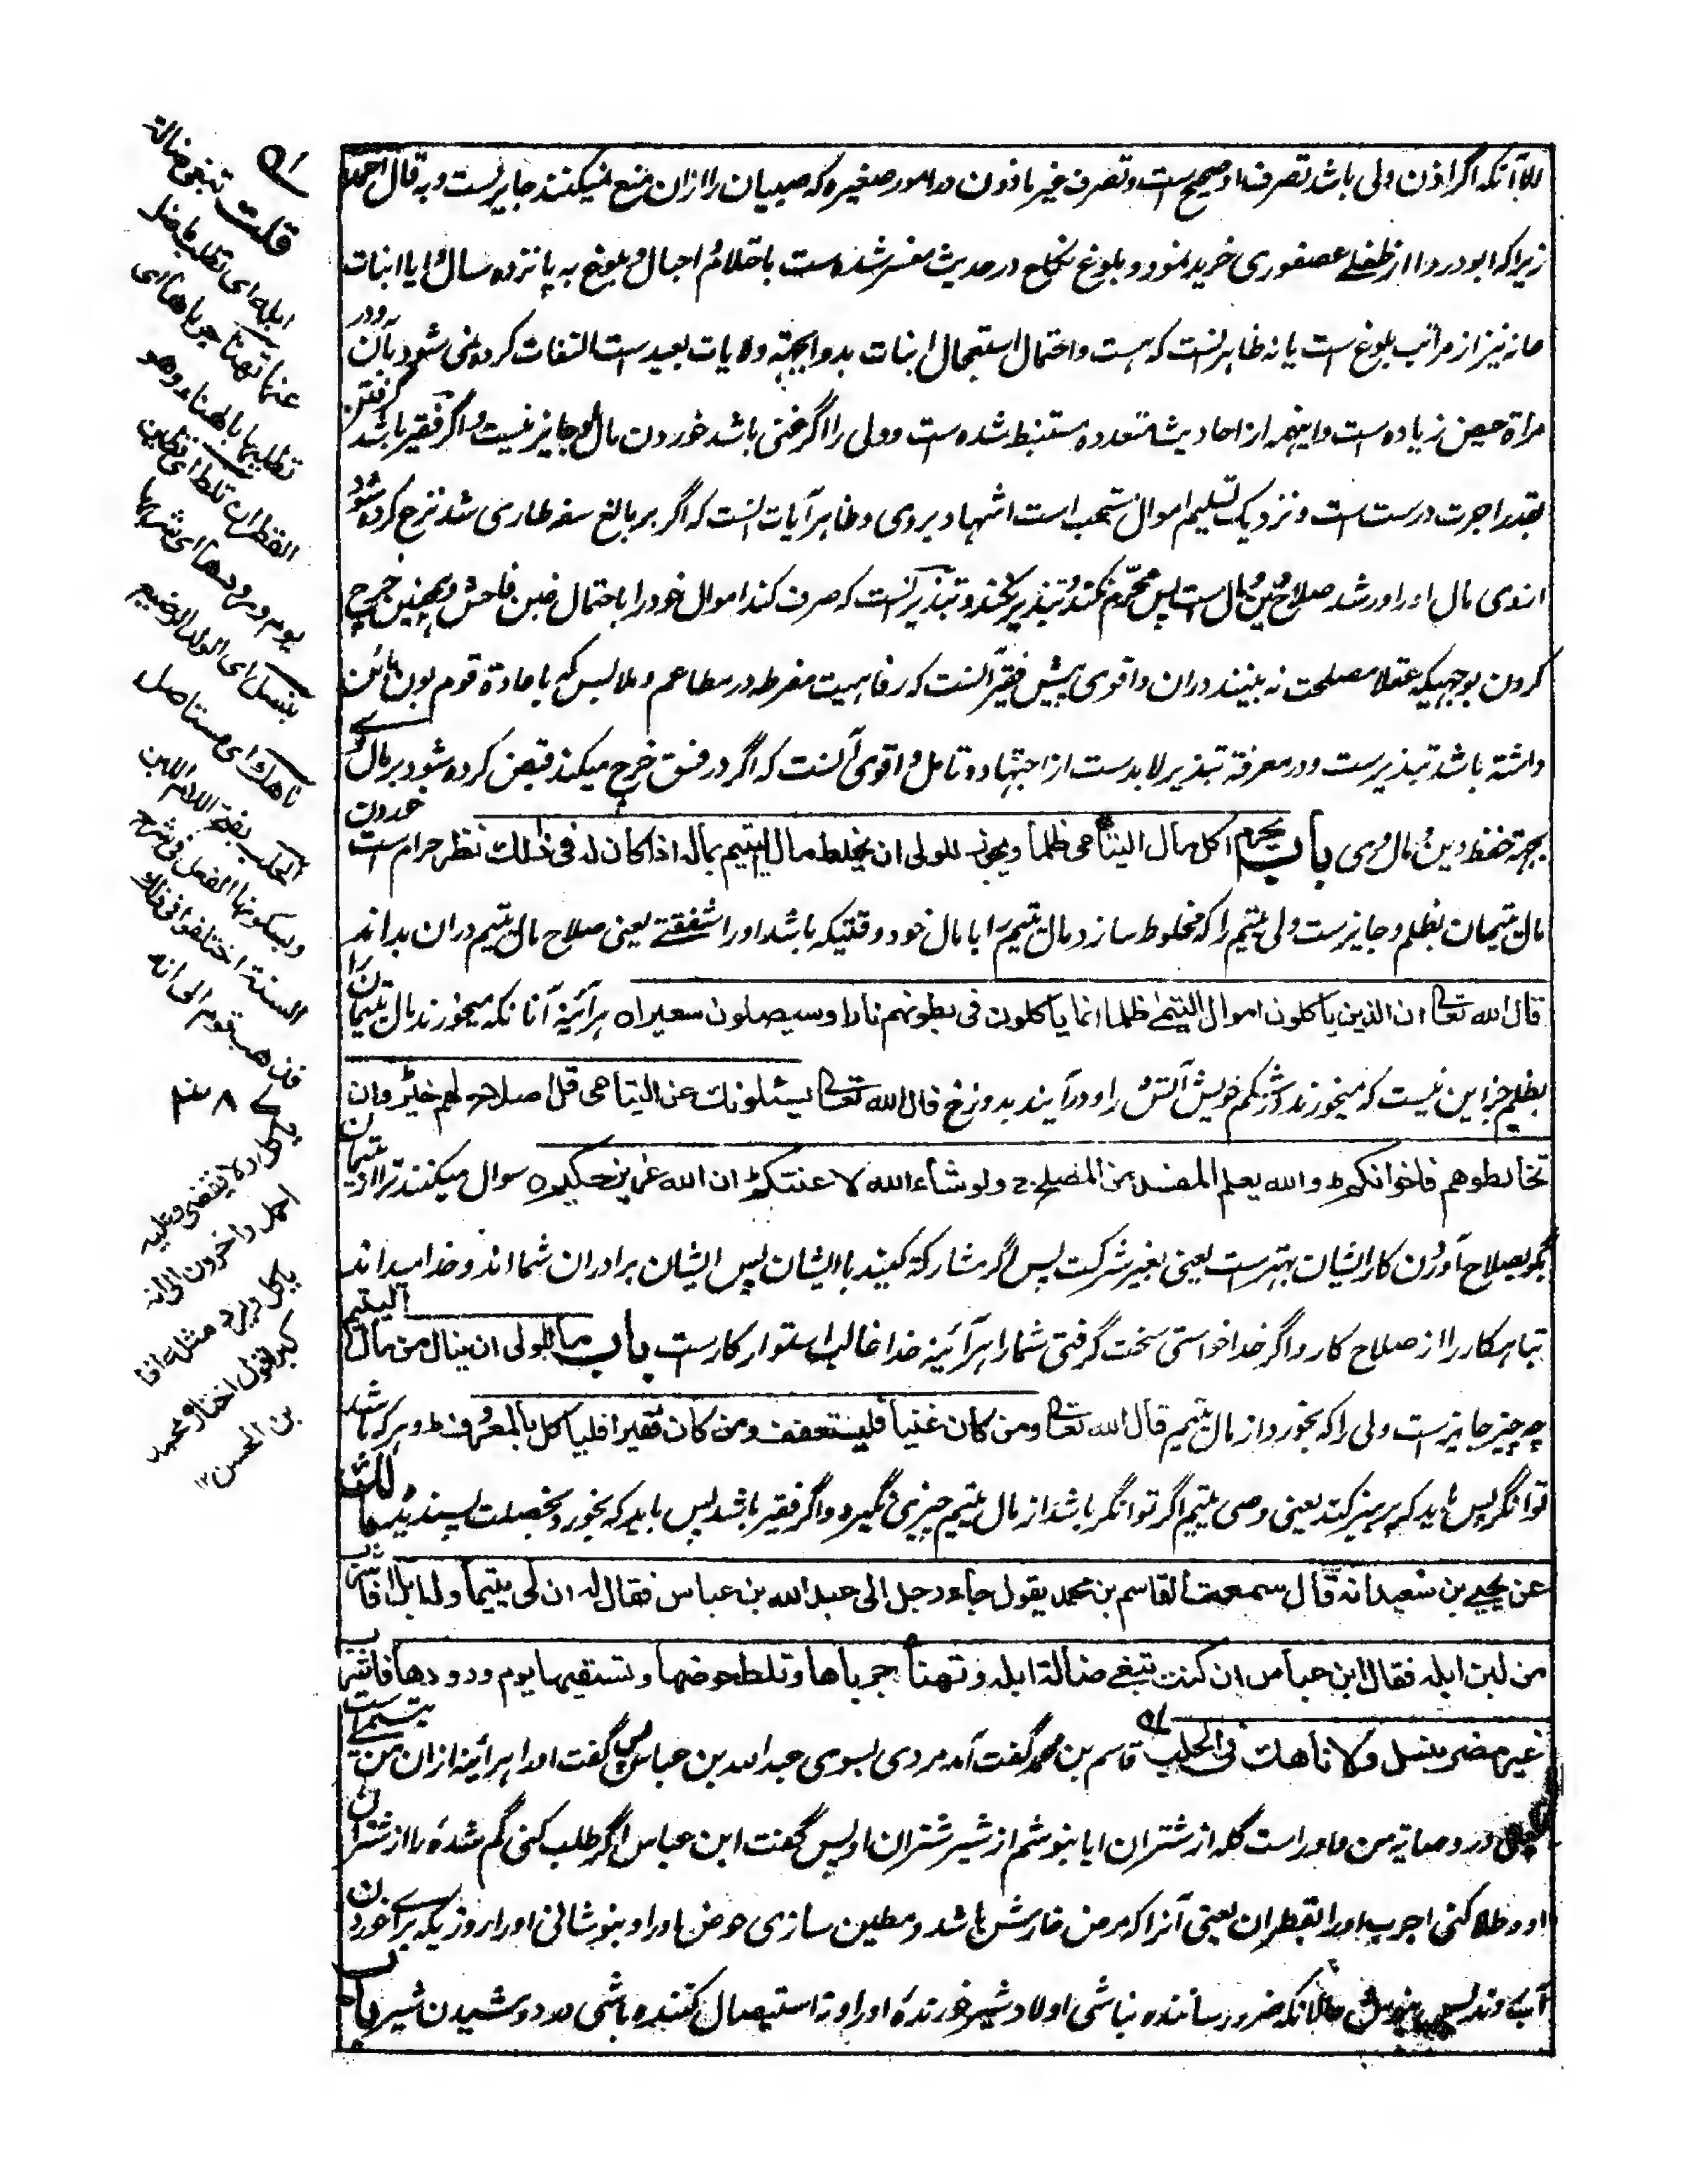 الا آنکه اگر اذن ولی باشد تصرف او صحیح است و تصرف غیر ماذون در امور صغیره که صبیان را ازان منع نمیکنند جایزست و به قال احمد
زیرا که ابو دردا از طفلے عصفوری خرید نمود و بلوغ نکاح در حدیث مفسر شده ست باحتلام احبال و بلوغ به پانزده سال و ایا انبات
عانه نیز از مراتب بلوغ ست یا نه ظاهر آنست که هست و احتمال استعجال انبات بدوا بجهته ولایات بعید ست التفات کرده نمی شود بآن و در
مراة حیض زیاده ست و اینهمه از احادیث متعدده مستنبط شده ست و ولی را اگر غنی باشد خوردن مال او جایز نیست و اگر فقیر باشد گرفتن
بقدر اجرت درست ست و نزدیک تسلیم اموال مستحب است اشهاد بروی و ظاهر آیات آنست که اگر بر بالغ سفه طاری شد نزع کرده شود
از وی مال او را و رشد صلاح دین و مال ست پس محرم نکند و تبذیر نکند و تبذیر آنست که صرف کند اموال خود را باحتمال غبن فاحش و همچنین خرج
کردن بوجهیکه عقلا مصلحت نه بینند دران و اقوی پیش فقیر آنست که رفاهیت مفرطه در مطاعم و ملابس که با عادة قوم بون بائن
داشته باشد تبذیرست و در معرفة تبذیر لابدست از اجتهاد و تامل و اقوی آنست که اگر در فسق خرج میکند قبض کرده شود بر مال وے
بجهة حفظ دین و مال وی باب یحرم اکل مال الیتامی ظلما ویجوز للولی ان یخلط مال الیتیم بماله اذا کان له فی ذلک نظر حرام است خوردن
مال یتیمان بظلم و جایزست ولی یتیم را که مخلوط سازد مال یتیم را با مال خود وقتیکه باشد او را شفقتے یعنی صلاح مال یتیم دران بداند
قال الله تعالی ان الذین یاکلون اموال الیتمی ظلما انما یاکلون فی بطونهم نارا وسیصلون سعیراه هر آئینه آنانکه میخورند مال یتیمان را
بظلم جز این نیست که میخورند در شکم خویش آتش را و درآیند بدوزخ قال الله تعالی یسئلونک عن الیتامی قل اصلاح لهم خیر وان
تخالطوهم فاخوانکم ط والله یعلم المفسد من المصلح ج ولو شاء الله لاعنتکم ط ان الله عزیز حکیم ه سوال میکنند ترا از یتیمان
بگو بصلاح آوردن کار ایشان بهترست یعنی بغیر شرکت پس اگر مشارکة کنید با ایشان پس ایشان برادران شما اند و خدا میداند
تباهکار را از صلاح کار و اگر خدا خواستی سخت گرفتی شما را هر آئینه خدا غالب استوار کارست باب ما للولی ان ینال من مال الیتیم
چه چیز جایزست ولی را که بخورد از مال یتیم قال الله تعالی ومن کان غنیا فلیستعفف ومن کان فقیرا فلیاکل بالمعروف ط و هر که باشد
توانگر پس باید که پرهیز کند یعنی وصی یتیم اگر توانگر باشد از مال یتیم چیزی نگیرد و اگر فقیر باشد پس باید که بخورد بخصلت پسندیده مالک
عن یحیی بن سعید انه قال سمعت القاسم بن محمد یقول جاء رجل الی عبد الله بن عباس فقال له ان لی یتیما وله ابل افاشرب
من لبن ابله فقال ابن عباس ان کنت تبغی ضالة ابله وتهنأ جرباها وتلط حوضها وتسقیها یوم ورودها فاشرب
غیر مضر بنسل ولا ناهک فی الحلب قاسم بن محمد گفت آمد مردی بسوی عبد الله بن عباس پس گفت او را هر آئینه ازان من یتیمے است
در وصایة من و او راست گله از شتران ایا بنوشم از شیر شتران او پس گفت ابن عباس اگر طلب کنی گم شده را از شتران
او و طلا کنی اجرب او را بقطران یعنی آنرا که مرض خارش باشد و مطین سازی حوض او را و بنوشانی او را روزیکه برای خوردن
آب روند پس بنوش حالانکه ضرر رساننده نباشی اولاد شیر خورنده او را و نه استیصال کننده باشی در دوشیدن شیر باب
قلت تبغی ضالة
ابله ای تطلب ما ضل
عنها تهنأ جرباها ای
تطلیها بالهناء وهو
القطران تلط ای تطین
یوم ورودها ای شربها
بنسل ای الولد الرضیع
ناهک ای مستاصل
الحلب بفتح اللام اللبن
وبسکونها الفعل فی شرح
السنة اختلفوا فی ذلک
فذهب قوم الی انه
یاکل ولا یقضی وعلیه
احمد واخرون الی انه
یاکل ویرد مثله اذا
کبر
بن الحسن ۱۲